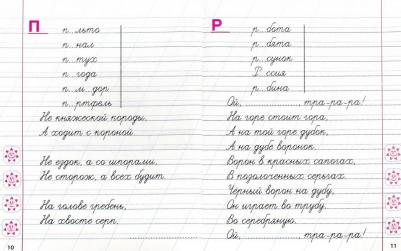 П
п..льто
п..нал
п..тух
п..года
п..м..дор
п..ртфель
Не княжеской породы,
А ходит с короной.
Не ездок, а со шпорами,
Не сторож, а всех будит.
На голове гребень,
На хвосте серп.
10
Р
р..бота
р..бята
р..сунок
Р..ссия
р..бина
Ой, ............, тра-ра-ра!
На горе стоит гора,
А на той горе дубок,
А на дубе воронок.
Ворон в красных сапогах,
В позолоченных серьгах.
Черный ворон на дубу,
Он играет во трубу.
Во серебряную.
Ой, ............, тра-ра-ра!
11